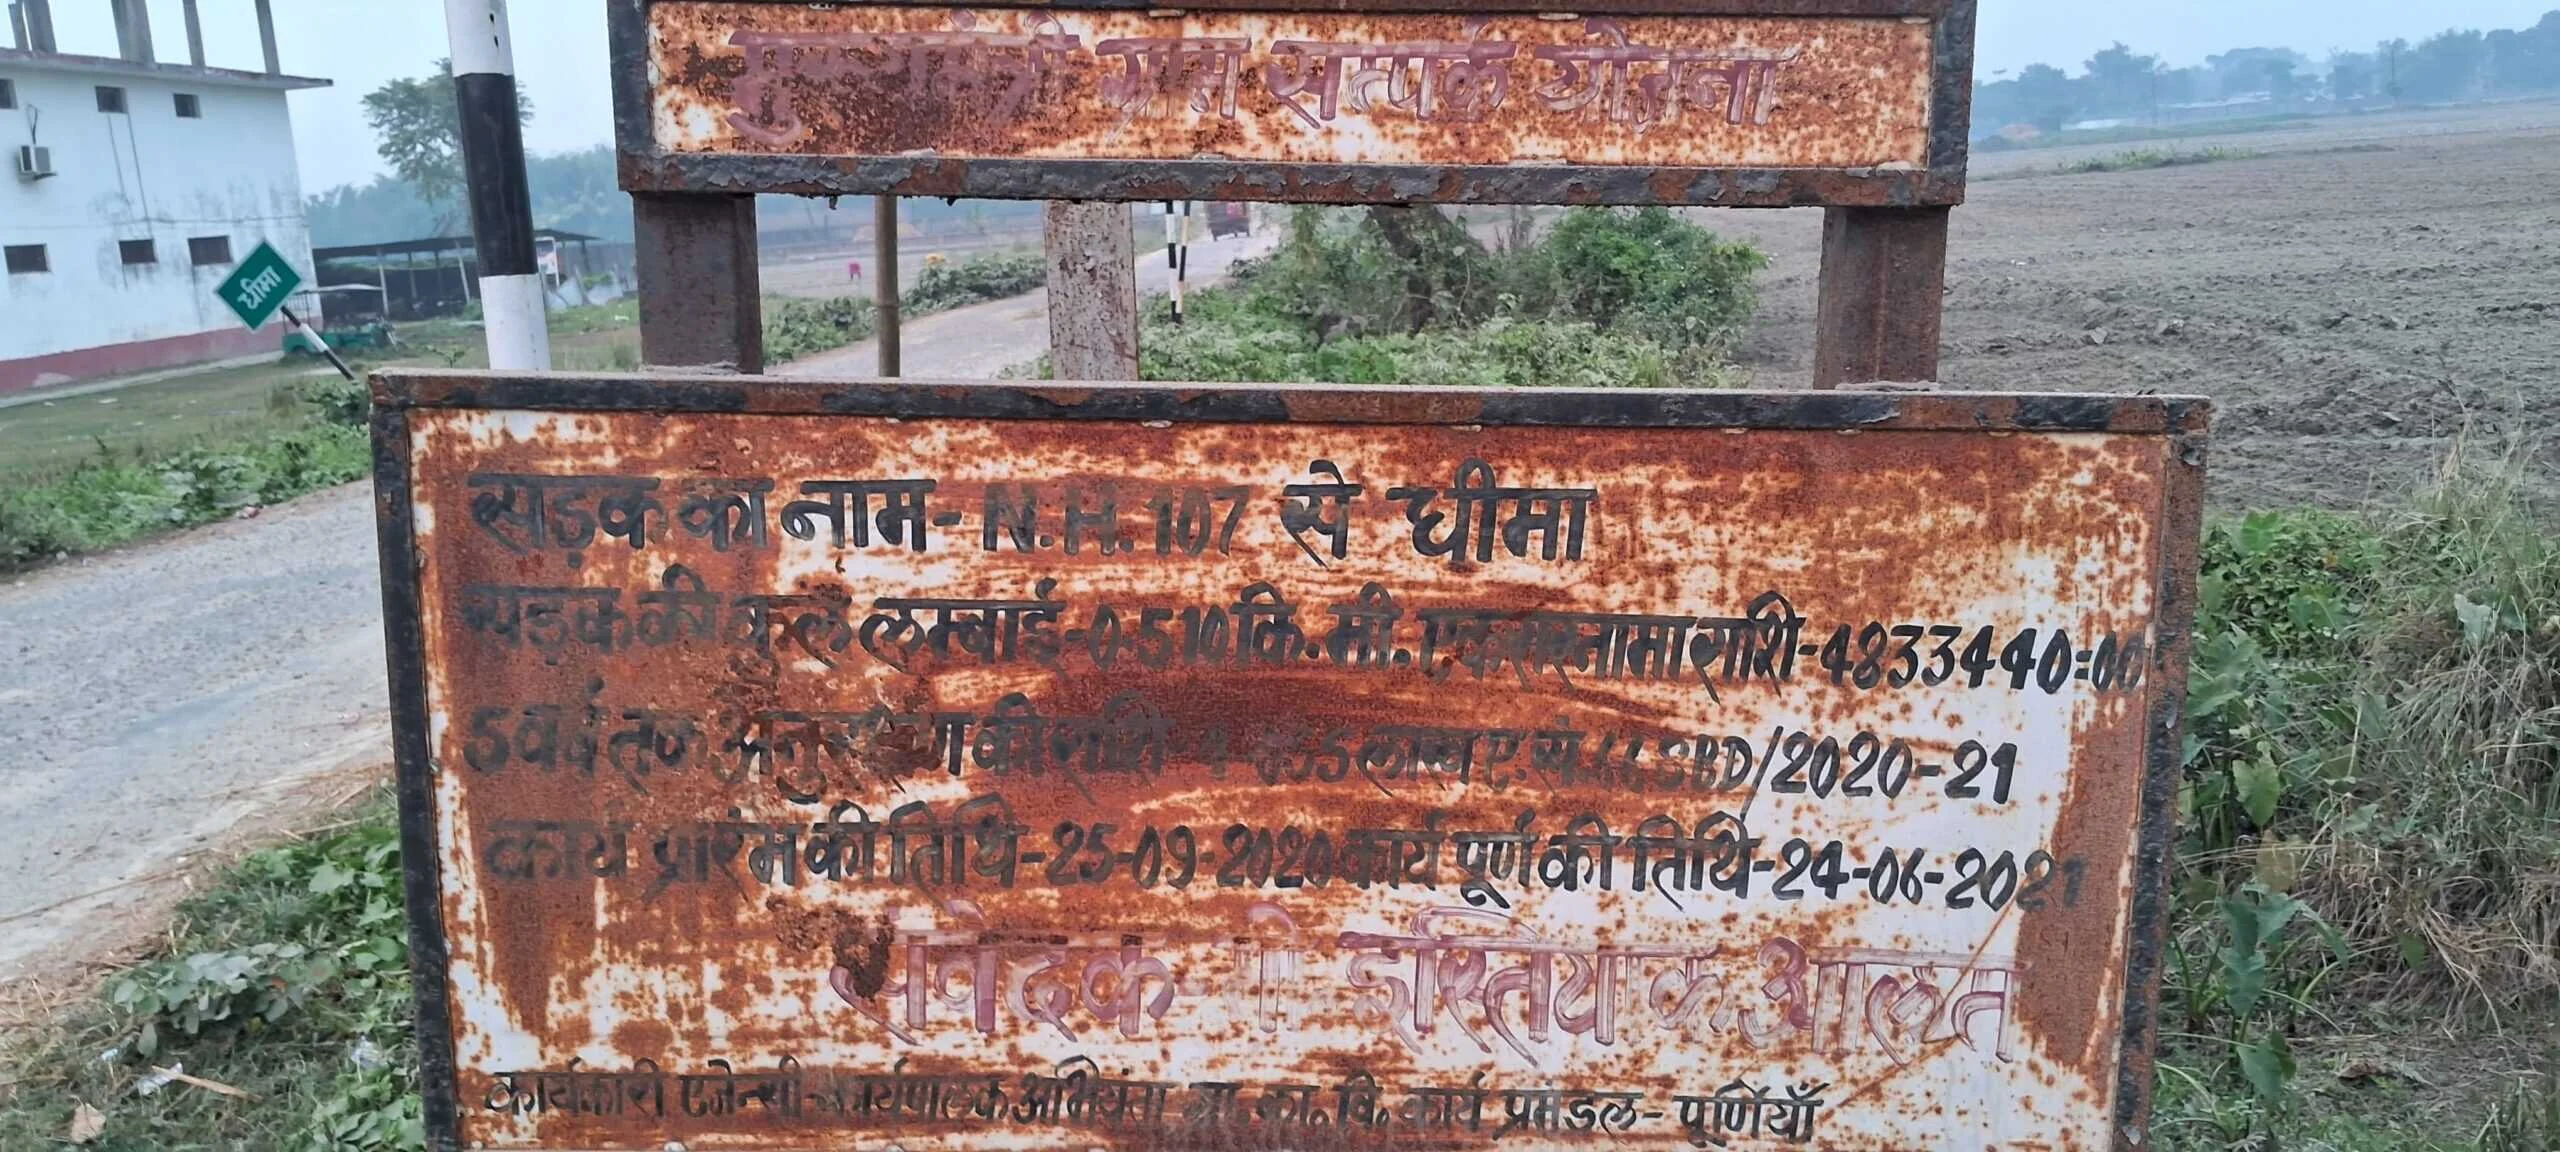 मुख्यमंत्री ग्राम सम्पर्क योजना
घीमा
सड़क का नाम- N.H. 107 से घीमा
सड़क की कुल लम्बाई-0.510 कि.मी. एकरारनामा राशि-4833440=00
5 वर्ष तक अनुरक्षण की राशि लाख ए.सं. SBD/2020-21
कार्य प्रारंम की तिथि-25-09-2020 कार्य पूर्ण की तिथि-24-06-2021
संवेदक इस्तियाक आलम
कार्यकारी एजेन्सी-कार्यपालक अभियंता ग्रा. का. वि. कार्य प्रमंडल- पूर्णियाँ